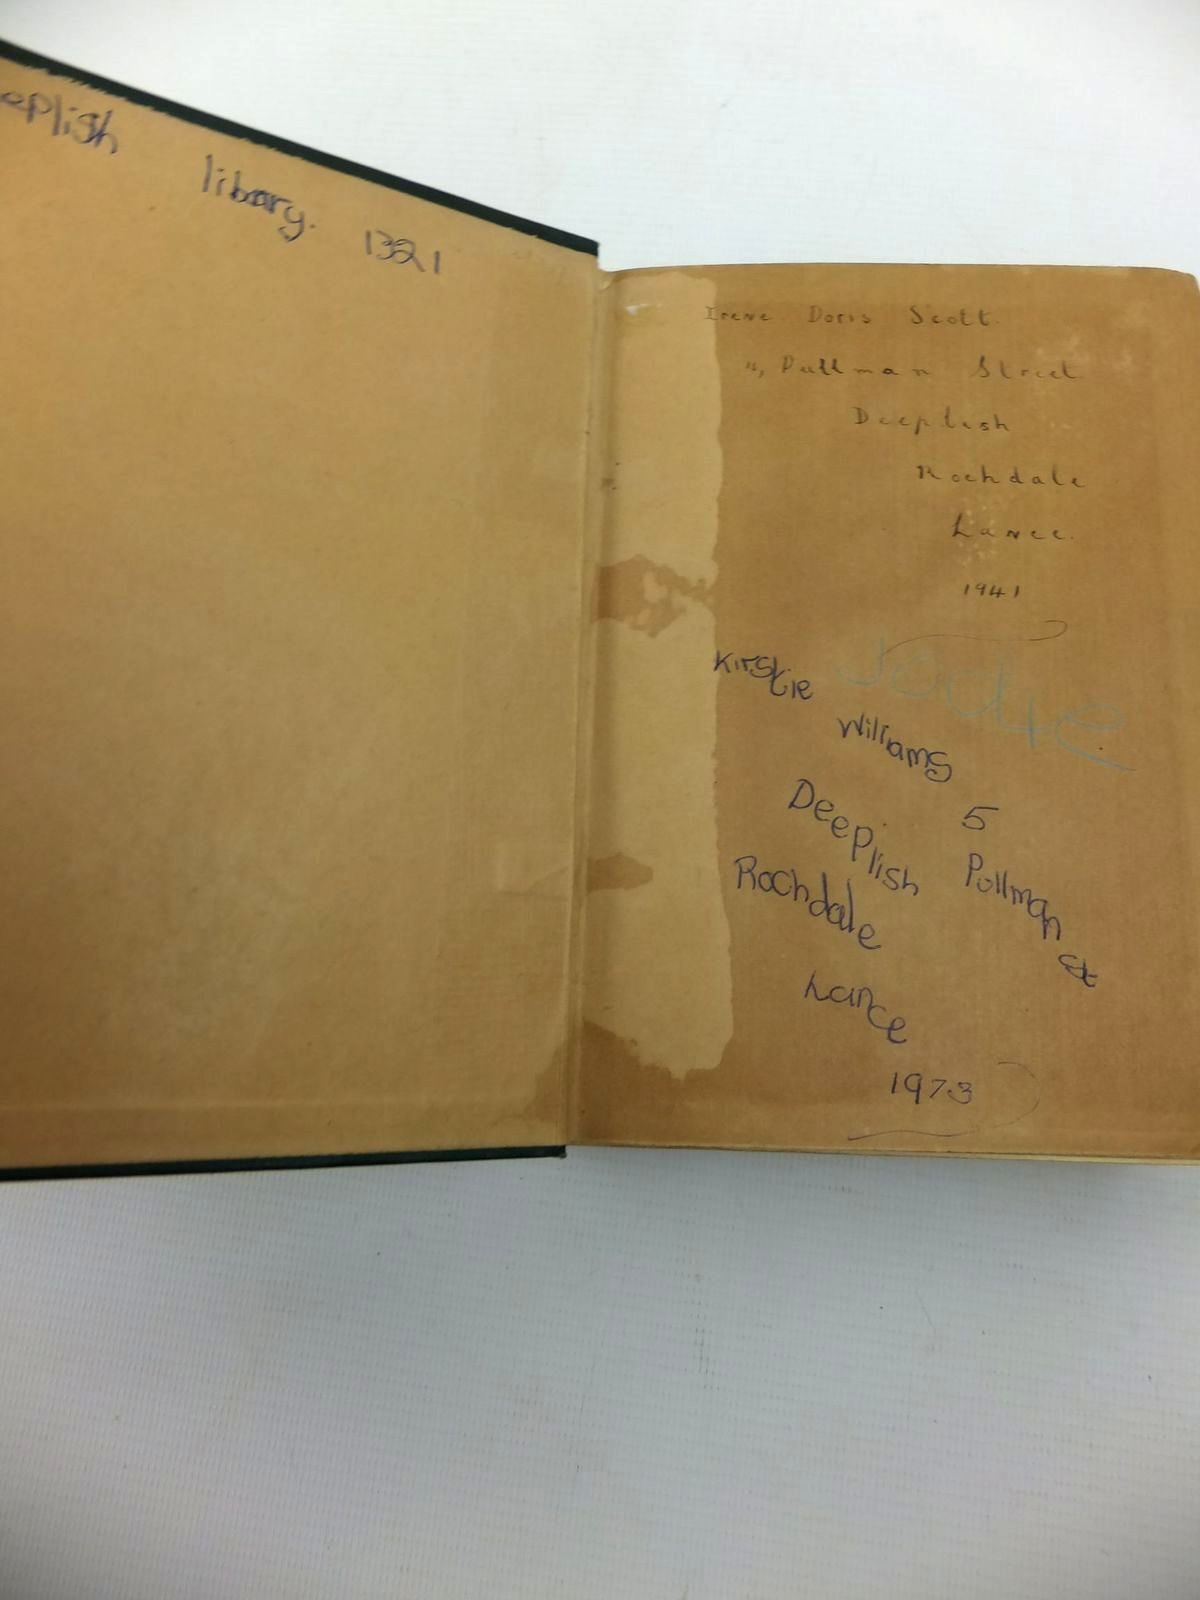 eeplish library. 1321
Irene Doris Scott.
Pullman Street
Deeplish
Rochdale
Lancc.
1941
Jodie
Kirstie Williams
5 Pullman st
Deeplish
Rochdale
Lance
1973